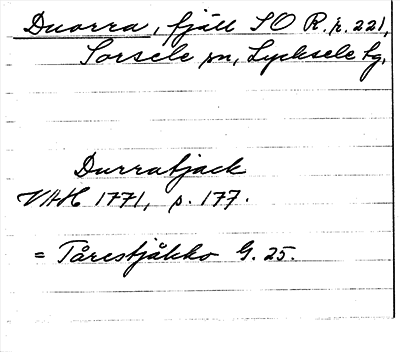 Duorra, fjäll SO R.r. 221,
Sorsele sn, Lycksele lg.
Durratjack
VAH 1771, s. 177.
= Tårestjåkko G. 25.